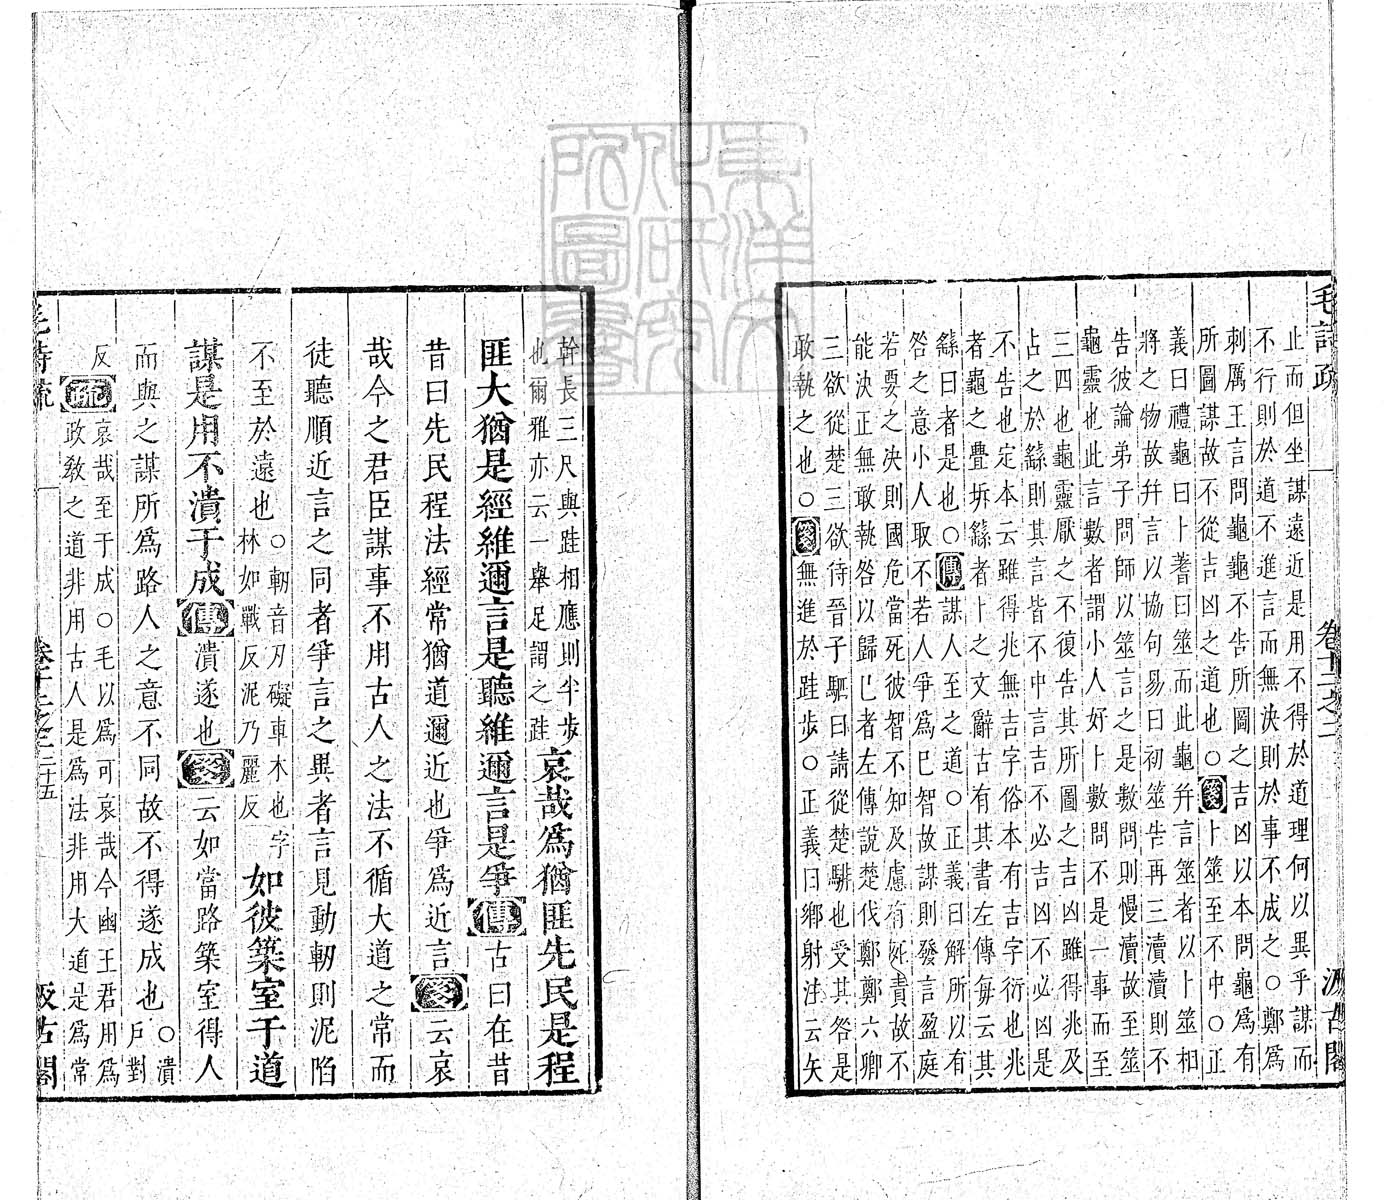 毛詩疏
卷十二之二
汲古閣
止而但坐謀遠近是用不得於道理何以異乎謀而
不行則於道不進言而無決則於事不成之○鄭爲
刺厲王言問龜龜不告所圖之吉凶以本問龜爲有
所圖謀故不從吉凶之道也○箋卜筮至不中○正
義曰禮龜曰卜蓍曰筮而此龜幷言筮者以卜筮相
將之物故幷言以協句易曰初筮告再三瀆瀆則不
告彼論弟子問師以筮言之是數問則慢瀆故至筮
龜靈也此言數者謂小人好卜數問不是一事而至
三四也龜靈厭之不復告其所圖之吉凶雖得兆及
占之於繇則其言皆不中言吉不必吉凶不必凶是
不告也定本云雖得兆無吉字俗本有吉字衍也兆
者龜之舋坼繇者卜之文辭古有其書左傳每云其
繇曰者是也○傳謀人至之道○正義曰解所以有
咎之意小人取不若人爭爲己智故謀則發言盈庭
若要之決則國危當死彼智不知及慮有死責故不
能決正無敢執咎以歸己者左傳說楚伐鄭鄭六卿
三欲從楚三欲待晉子駟曰請從楚騑也受其咎是
敢執之也○箋無進於跬步○正義曰鄉射注云矢
幹長三尺與跬相應則半步
也爾雅亦云一舉足謂之跬
哀哉爲猶匪先民是程
匪大猶是經維邇言是聽維邇言是爭傳古曰在昔
昔曰先民程法經常猶道邇近也爭爲近言箋云哀
哉今之君臣謀事不用古人之法不循大道之常而
徒聽順近言之同者爭言之異者言見動軔則泥陷
不至於遠也
○軔音刃礙車木也字
林如戰反泥乃麗反
如彼築室于道
謀是用不潰于成傳潰遂也箋云如當路築室得人
而與之謀所爲路人之意不同故不得遂成也
○潰
戶對
反疏
哀哉至于成○毛以爲可哀哉今幽王君用爲
政教之道非用古人是爲法非用大道是爲常
毛詩疏
卷十二之二
二十五
汲古閣
東洋文
化研究
所圖書